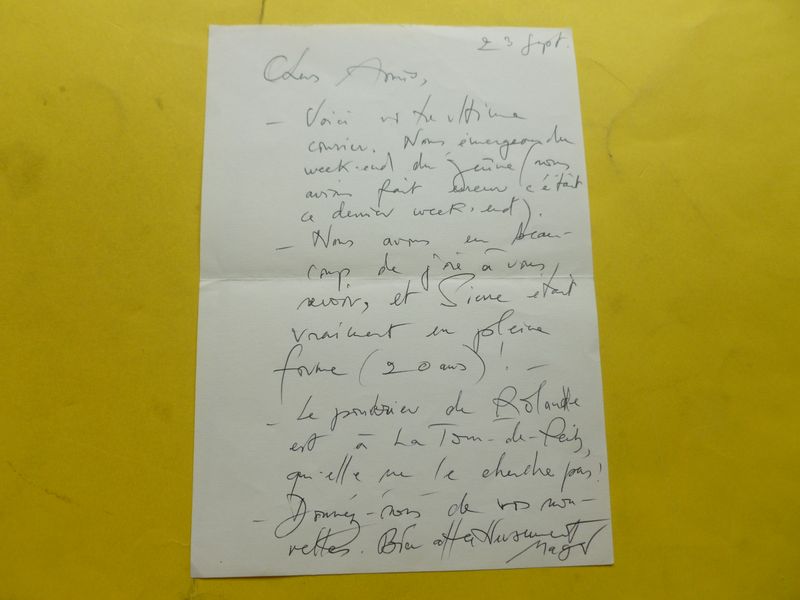 23 Sept.
Chers Amis,
- Voici votre ultime
courrier. Nous émergeons du
week-end du jeûne (nous
avions fait erreur c'était
ce dernier week-end).
- Nous avons eu beau-
coup de joie à vous
revoir, et Pierre était
vraiment en pleine
forme (20 ans)! -
- Le poudrier de Rolande
est à La Tour-de-Peilz,
qu'elle ne le cherche pas!
- Donnez-nous de vos nou-
velles. Bien affectueusement